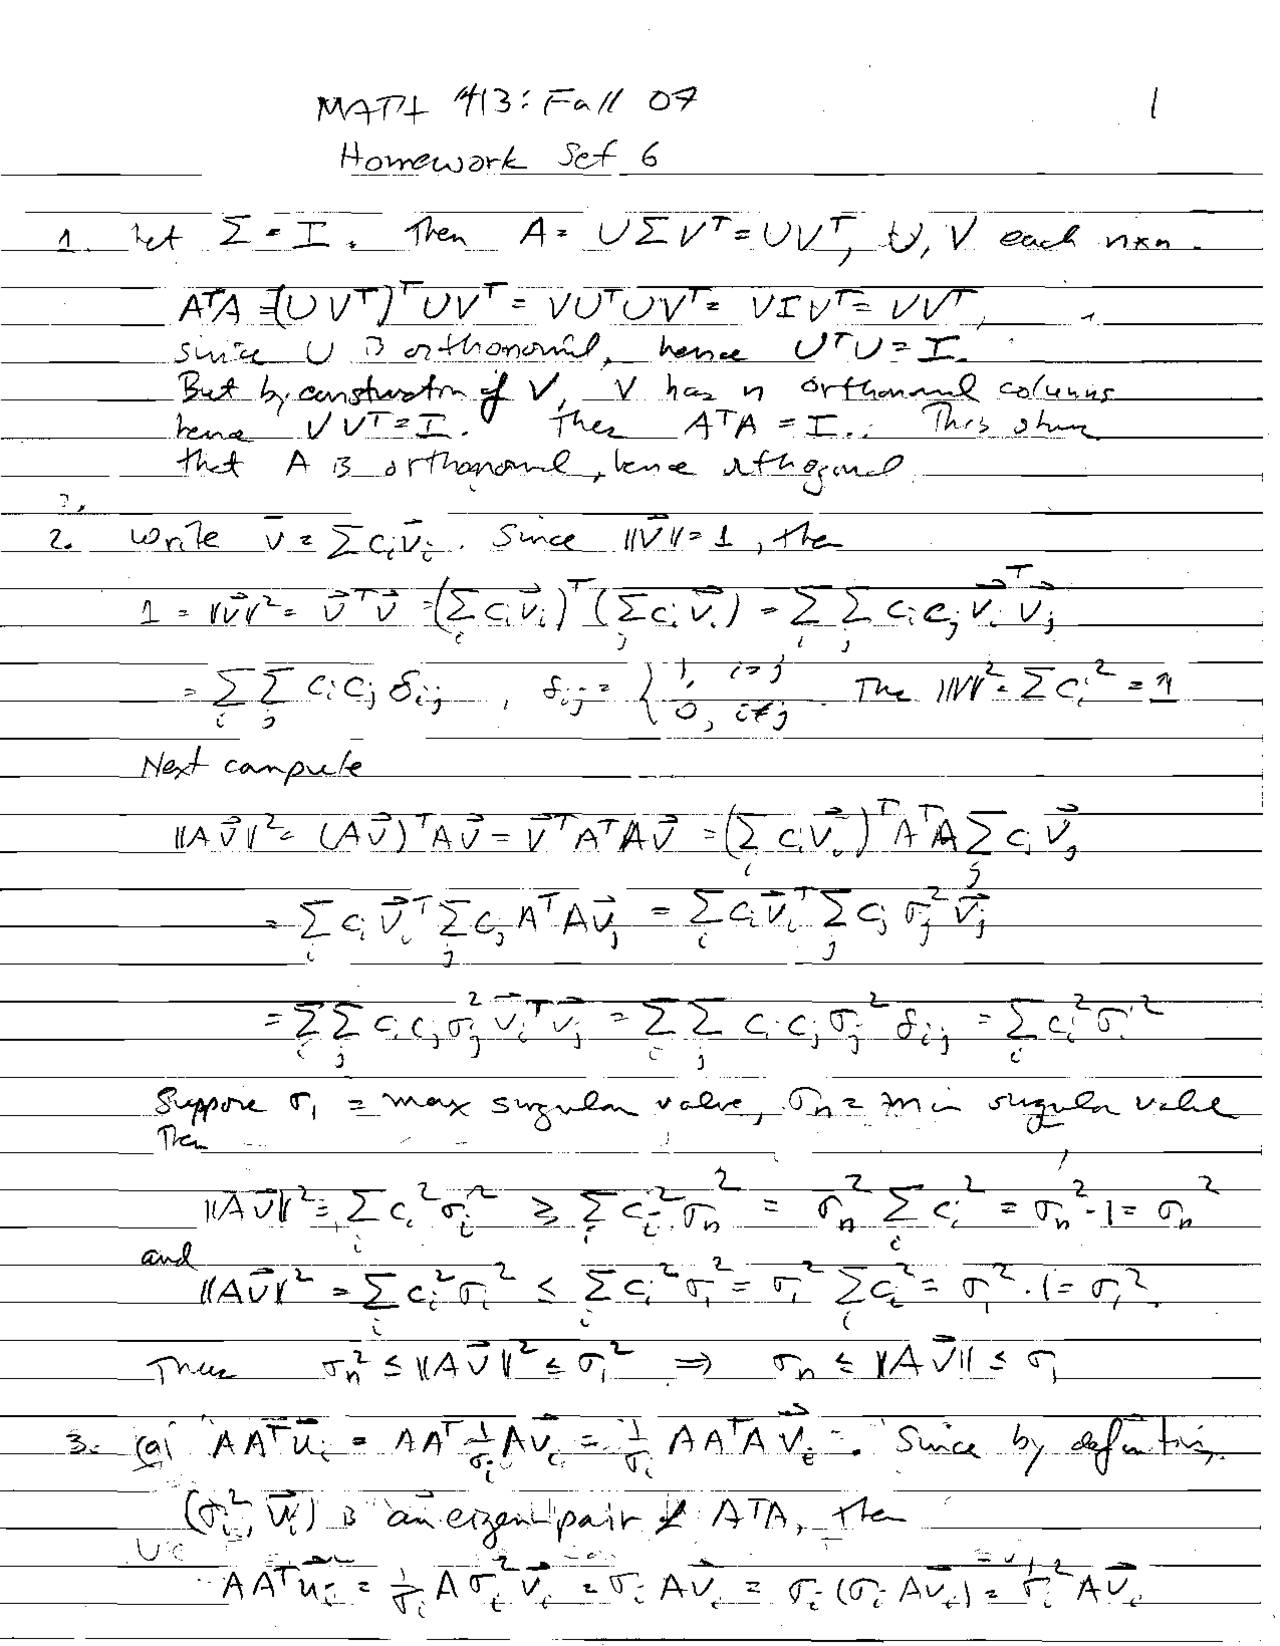 MATH 413: Fall 07 1
Homework Set 6
1. Let Σ = I. Then A = UΣVᵀ = UVᵀ, U, V each n×n.
AᵀA = (UVᵀ)ᵀUVᵀ = VUᵀUVᵀ = VIVᵀ = VVᵀ,
since U is orthonormal, hence UᵀU = I.
But by construction of V, V has n orthonormal columns
hence VVᵀ = I. Then AᵀA = I. This shows
that A is orthonormal, hence orthogonal.
2. Write v̄ = Σ cᵢv⃗ᵢ. Since ‖v⃗‖ = 1, then
1 = ‖v⃗‖² = v⃗ᵀv⃗ = (Σᵢ cᵢv⃗ᵢ)ᵀ(Σⱼ cⱼv⃗ⱼ) = Σᵢ Σⱼ cᵢcⱼv⃗ᵢᵀv⃗ⱼ
= Σᵢ Σⱼ cᵢcⱼδᵢⱼ, δᵢⱼ = { 1, i=j; 0, i≠j. The ‖v‖² = Σcᵢ² = 1
Next compute
‖Av⃗‖² = (Av⃗)ᵀAv⃗ = v⃗ᵀAᵀAv⃗ = (Σᵢ cᵢv⃗ᵢ)ᵀAᵀA Σⱼ cⱼv⃗ⱼ
= Σᵢ cᵢv⃗ᵢᵀ Σⱼ cⱼAᵀAv⃗ⱼ = Σᵢ cᵢv⃗ᵢᵀ Σⱼ cⱼσⱼ²v⃗ⱼ
= Σᵢ Σⱼ cᵢcⱼσⱼ²v⃗ᵢᵀv⃗ⱼ = Σᵢ Σⱼ cᵢcⱼσⱼ²δᵢⱼ = Σᵢ cᵢ²σᵢ²
Suppose σ₁ = max singular value, σₙ = min singular value
Then
‖Av⃗‖² = Σᵢ cᵢ²σᵢ² ≥ Σᵢ cᵢ²σₙ² = σₙ² Σᵢ cᵢ² = σₙ²·1 = σₙ²
and
‖Av⃗‖² = Σᵢ cᵢ²σᵢ² ≤ Σᵢ cᵢ²σ₁² = σ₁² Σᵢ cᵢ² = σ₁²·1 = σ₁².
Thus σₙ² ≤ ‖Av⃗‖² ≤ σ₁² ⇒ σₙ ≤ ‖Av⃗‖ ≤ σ₁
3. (a) AAᵀu⃗ᵢ = AAᵀ 1/σᵢ Av⃗ᵢ = 1/σᵢ AAᵀAv⃗ᵢ. Since by definition,
(σᵢ², v⃗ᵢ) is an eigenpair of AᵀA, then
AAᵀu⃗ᵢ = 1/σᵢ Aσᵢ²v⃗ᵢ = σᵢAv⃗ᵢ = σᵢ(σᵢAv⃗ᵢ) = σᵢ²Av⃗ᵢ